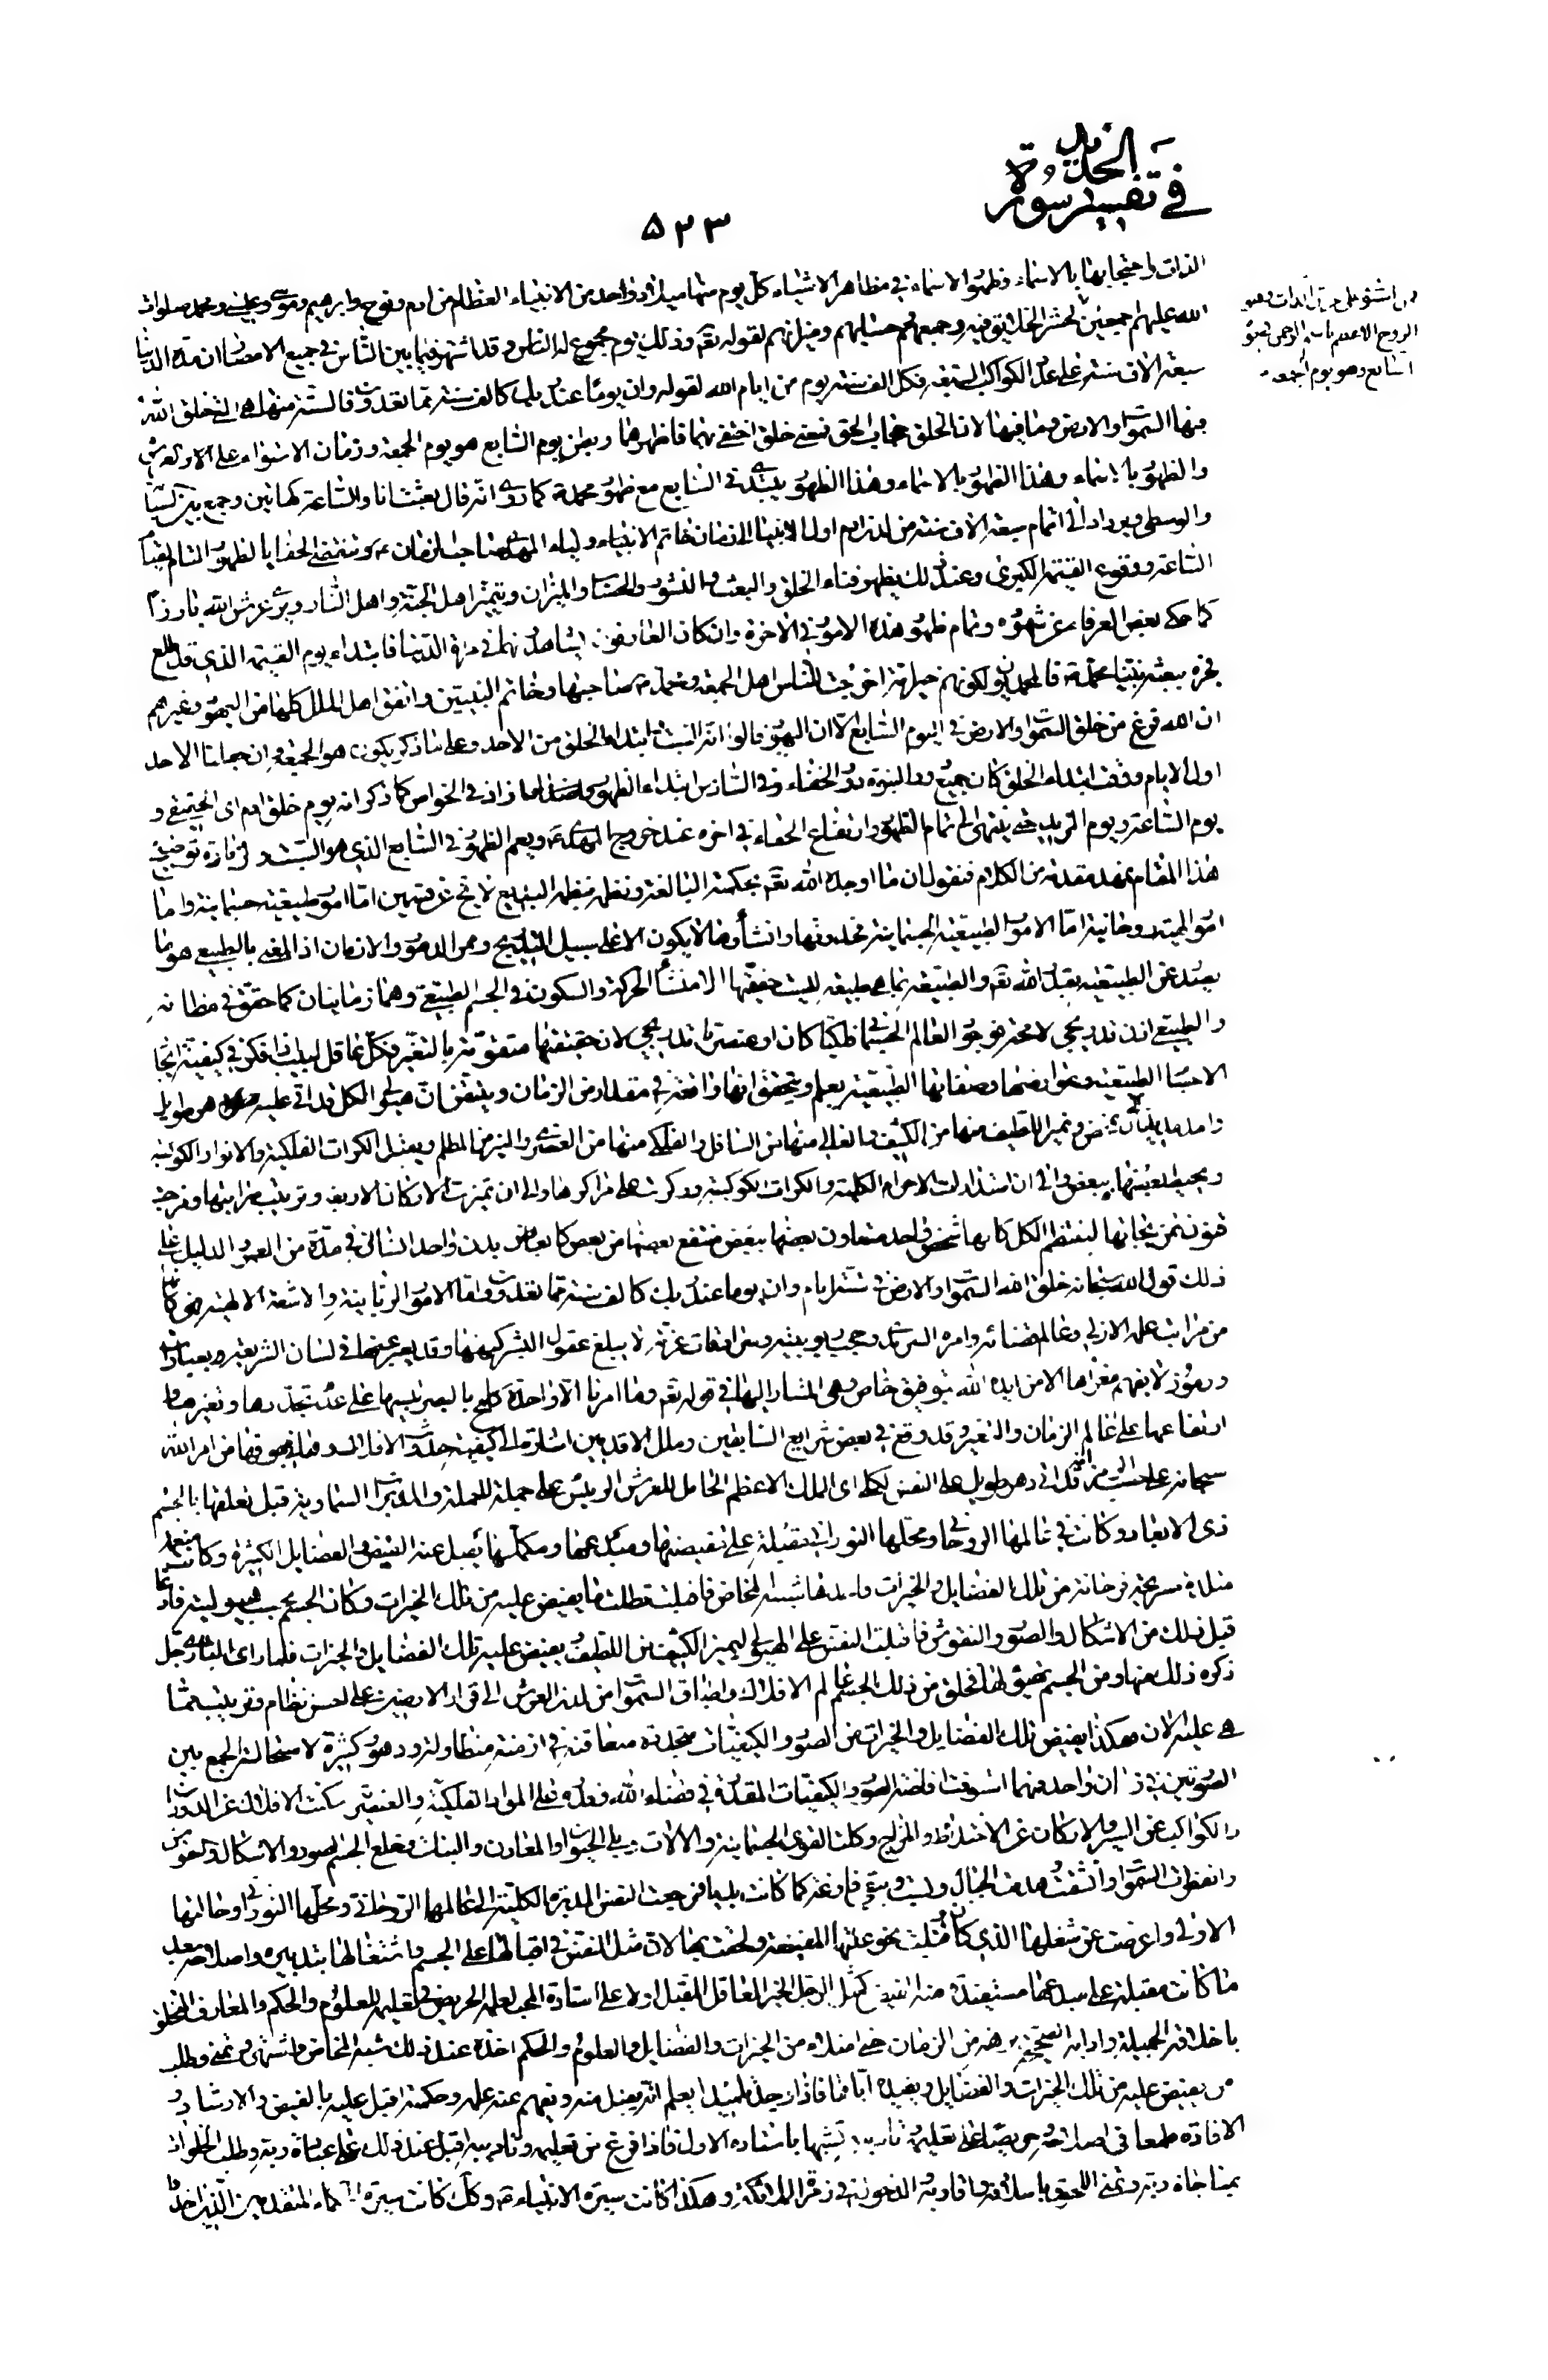 في تفسير سورة الحديد
٥٢٣
الذات واحتجابها بالاسماء وظهور الاسماء في مظاهر الاشياء كل يوم منها ميلاد واحد من الانبياء العظام من ادم ونوح وابرهيم وموسى وعيسى ومحمد صلوات
الله عليهم اجمعين لحشر الخلائق فيه وجمعهم لقوله تعالى وذلك يوم مجموع له الناس وقد اشتهر فيما بين الناس في جميع الامصار ان مدة الدنيا
سبعة الاف سنة على عدد الكواكب السبعة فكل الف سنة يوم من ايام الله لقوله وان يوما عند ربك كالف سنة مما تعدون فالستة منها هي التي خلق الله
فيها السموات والارض وما فيها لان الخلق حجاب الحق فمعنى خلق اختفى بهما فاظهرهما وبطن يوم السابع هو يوم الجمعة وزمان الاستواء على العرش
والظهور بالاسماء وهذا الظهور بالاسماء وهذا الظهور يبتدي في السابع مع ظهور محمد كما روى انه قال بعثت انا والساعة كهاتين وجمع بين السبابة
والوسطى ويزداد الى اتمام سبعة الاف سنة من لدن ادم اول الانبياء الى زمان خاتم الانبياء المهدي صاحب الزمان
الساعة ووقوع القيمة الكبرى وعند ذلك يظهر فناء الخلق والبعث والنشور والحساب والميزان ويتميز اهل الجنة واهل النار ويرى عرش الله بارزا
كما حكى بعض العرفاء عن شهوده وتمام ظهور هذه الامور في الاخرة وان كان العارفون يشاهدونها في مرآة الدنيا فابتداء يوم القيمة الذي قد طلع
فجره ببعثة نبينا محمد فالمحمديون لكونهم خير امة اخرجت للناس اهل الجمعة ومحمد صاحبها وخاتم النبيين واتفق اهل الملل كلها من اليهود وغيرهم
ان الله فرغ من خلق السموات والارض في اليوم السابع الا ان اليهود قالوا انه السبت وابتداء الخلق من الاحد وعلى ما ذكر يكون هو الجمعة وان جعلنا الاحد
اول الايام ووقت ابتداء الخلق كان جميع دور النبوة دور الخفاء وفي السادس ابتداء الظهور وازداد في الخواص كما ذكر انه يوم خلق ادم اي الحقيقي و
يوم الساعة ويوم المزيد حتى ينتهي الى تمام الظهور وارتفاع الخفاء في اخره عند خروج المهدي ويعم الظهور في السابع الذي هو السبت ولزيادة توضيح
هذا المقام نمهد مقدمة من الكلام فنقول ان ما اوجده الله تعالى بحكمته البالغة ونظمه البديع لا يخ عن قسمين اما امور طبيعية جسمانية واما
امور الهية روحانية اما الامور الطبيعية الجسمانية فحدوثها وانشاؤها لا يكون الا على سبيل التدريج وممر الدهور والازمان اذ المعنى بالطبيعي هو ما
يصدر عن الطبيعة بقدر الله تعالى والطبيعة بما هي طبيعة ليست حقيقتها الا منشأ الحركة والسكون في الجسم الطبيعي وهما زمانيان كما حقق في مظانه
والطبيعي اذن تدريجي لا محة فوجود العالم الجسماني فلكيا كان او عنصريا تدريجي لان حقيقتها متقومة بالتغير فكل عاقل لبيب اذا فكر في كيفية ايجاد
الاجسام الطبيعية وعوارضها وصفاتها الطبيعية يعلم ويتحقق انها واقعة في مقدار من الزمان ويتيقن ان هيولى الكل قد اتى عليه دهر طويل
وتميز اللطيف منها من الكثيف والعالي منها من السافل والفلكي منها من العنصري والنير من المظلم وبقبل الكرات الفلكية والانوار الكوكبية
ويحيط بعضها ببعض والى ان استدارت الاجرام الكلية والكرات الكوكبية وركزت على مراكزها والى ان تميزت الاركان الاربعة وترتيب مراتبها
لينتظم الكل كانها شخص واحد متعاون بعضها ببعض منتفع بعضها من بعض كابعاض بدن واحد انساني في مدة من العمر والدليل على
ذلك قول الله سبحانه خلق الله السموات والارض في ستة ايام وان يوما عند ربك كالف سنة مما تعدون واما الامور الربانية والاشعة الالهية فهي كانها
من مراتب علمه الازلي وعالم قضائه وامره لا يبلغ عقول البشر كنهها وقد يعبر عنها في لسان الشريعة بعبارات
ورموز لا يفهم مغزاها الا من ايده الله بتوفيق خاص وهي المشار اليها في قوله تعالى وما امرنا الا واحدة كلمح بالبصر نبيها على عدم تجددها وتغيرها و
ارتفاعها على عالم الزمان والتغير وقد وقع في بعض شرايع السابقين وملل الاقدمين اشارة الى كيفية حدوث الافلاك وما فوقها من امر الله
سبحانه قد اتى دهر طويل على النفس الكلي اي الملك الاعظم الحامل للعرش الرئيس على جملة المدبرات السماوية قبل تعلقها بالجسم
ذي الابعاد وكانت في عالمها الروحاني ومحلها النوراني مقبلة على مفيضها ومبدعها ومكملها يقبل عنه الفيض والفضايل الكثيرة وكانت
من تلك الفضايل والخيرات فاقبلت تطلب ما يفيض عليه من تلك الخيرات وكان الجسم بحسب هيولية فارغا
قبل ذلك من الاشكال والصور والنقوش فاقبلت النفس على الهيولى ليميز الكثيف من اللطيف يفيض عليه تلك الفضايل والخيرات فلما راى الباري جل
ذكره ذلك منها ومن الجسم فخلق من ذلك الجسم عالم الافلاك واطباق السموات من لدن العرش الى قرار الارضين على احسن نظام وترتيب مما
هي عليه الان وهكذا يفيض تلك الفضايل والخيرات من الصور والكيفيات متجددة متعاقبة في ازمنة متطاولة ودهور كثيرة لاستحالة الجمع بين
الصورتين في ان واحد الصور والكيفيات المقدرة في قضاء الله وقدره على المواد الفلكية والعنصرية سكنت الافلاك عن الدوران
والكواكب عن السير والاركان عن الاختلاط والمزاج وكلت القوى الجسمانية والالات وبلى الحيوان والمعادن والنبات وخلع الجسم الصور والاشكال والنقوش
وانفطرت السموات وانشقت وهدمت الجبال وبقى فارغة كما كانت بديا فرجعت النفس المدبرة الكلية الى عالمها الروحاني ومحلها النوراني وحالتها
الاولى واعرضت عن شغلها الذي كان ولحقت بها لان مثل النفس في اقبالها على الجسم واشتغالها بتدبيره واصلاحه بعد
ما كانت مقبلة على مبدعها مستفيدة منه الفيض كمثل الرجل الخير العاقل المقبل اولا على استاده المحب لعلمه الحريص في تعليمه للعلوم والحكم والمعارف المتخلق
باخلاقه الجميلة وادابه الصحيحة برهة من الزمان حتى امتلاء من الخيرات والفضايل والعلوم والحكم اخذه عند ذلك شبه المخاض واشتهى وتمنى وطلب
من يفيض عليه من تلك الخيرات والفضايل ويفيده اياها فاذا وجد تلميذا يعلم انه يقبل منه ويفهم عنه علمه وحكمته اقبل عليه بالفيض والارشاد و
الافادة طمعا في اصلاحه وحرصا على تعليمه وتاديبه تشبها باستاده الاول فاذا فرغ من تعليمه وتاديبه اقبل عند ذلك على عبادة ربه وطلب الخلوات
بمناجاة ربه وتمنى اللحوق باسلافه والدخول في زمرة الملائكة وهكذا كانت سيرة الانبياء وكذلك كانت سيرة الحكماء المتقدمين
الروح الاعظم
السابع وهو يوم الجمعة